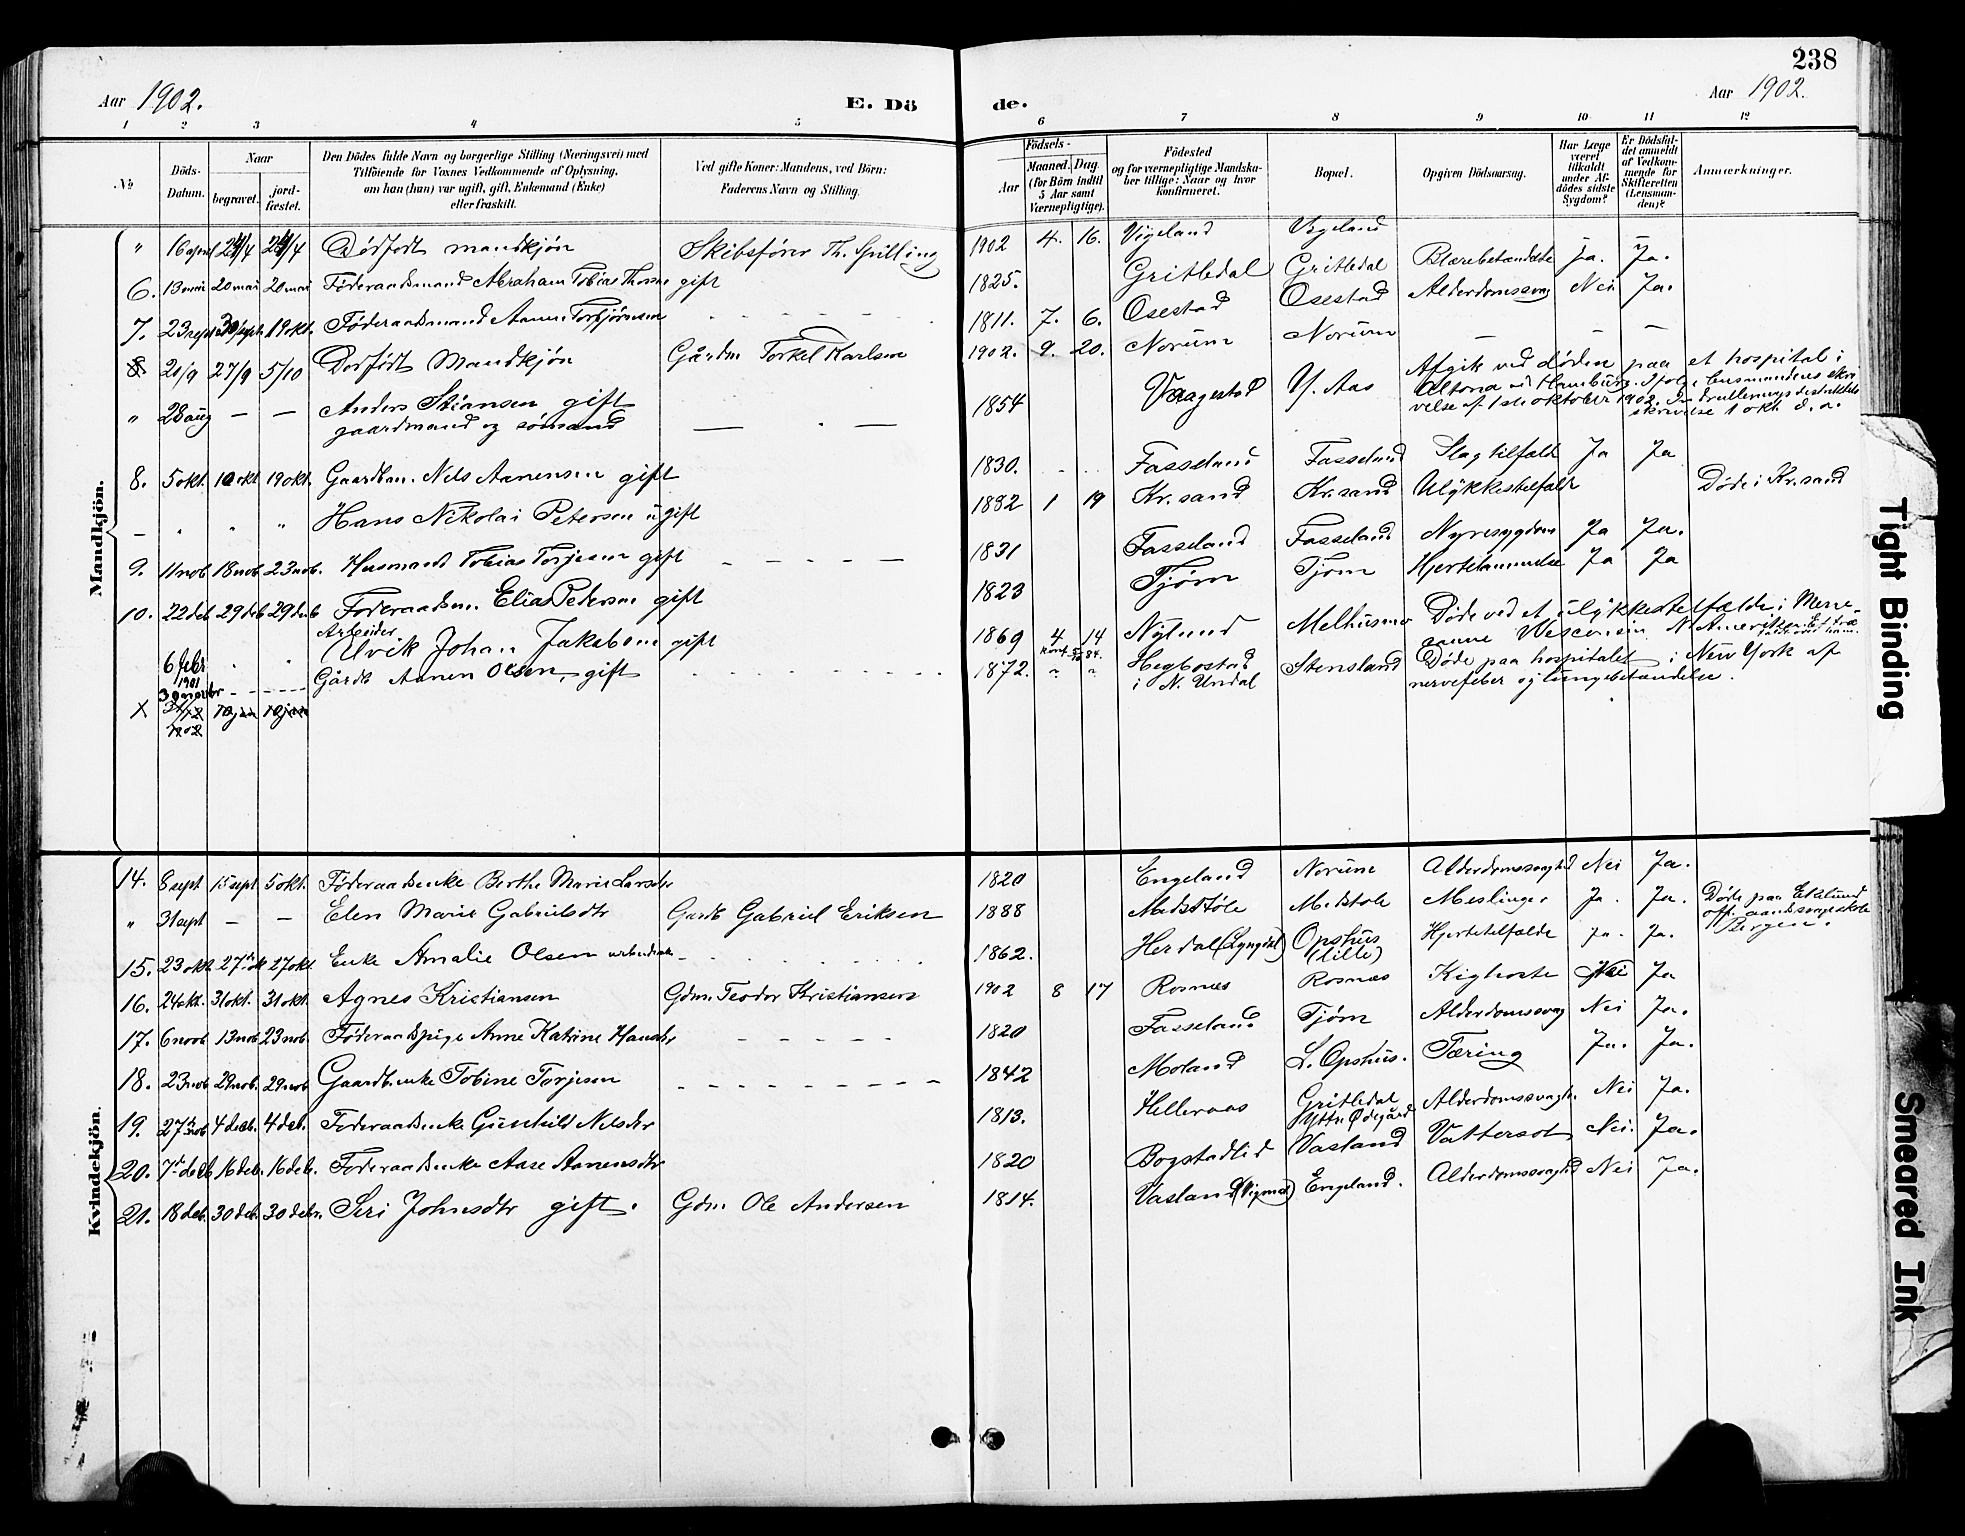 238
Aar 1902.
E. Dö
de.
Aar 1902.
1 2 3 4 5 6 7 8 9 10 11 12
No
Döds-Datum.
Naar
begravet.
jord-fæstet.
Den Dödes fulde Navn og borgerlige Stilling (Næringsvei) med
Tilföiende for Voxnes Vedkommende af Oplysning,
om han (hun) var ugift, gift, Enkemand (Enke)
eller fraskilt.
Ved gifte Koner: Mandens, ved Börn:
Faderens Navn og Stilling.
Födsels-
Aar
Maaned. Dag
(for Börn indtil
5 Aar samt
Værnepligtige).
Födested
og for værnepligtige Mandska-
ber tillige: Naar og hvor
konfirmeret.
Bopæl.
Opgiven Dödsaarsag.
Har Læge
været
tilkaldt
under Af-
dödes sidste
Sygdom?
Er Dödsfal-
det anmeldt
af Vedkom-
mende for
Skifteretten
(Lensman-
den)?
Anmærkninger.
Mandkjön.
" 16 april 24/4 24/4 Dødfødt mandkjøn Skibsfører Th. Spilling 1902 4. 16. Vigeland Vigeland – –
6. 13 mai 20 mai 20 mai Føderaadsmand Abraham Tobias gift 1825. Gritledal Gritledal Ja. Ja.
7. 23 sept 30 sept. 19 okt. Føderaadsmand Aanen Torbjørnsen 1811. 7. 6. Osestad Osestad Alderdomssvag Nei Ja.
8. 20/9 27/9 5/10 Dødfødt Mandkjøn Gårdm Torkel Karlsen 1902. 9. 20. Norum Norum – – –
" 28 aug – – Anders Stiansen gift
gaardmand og sømand 1854 Vaagestad Y. Aas Afgik ved døden paa et hospital i
Altona ved Hamburg. Ifølge lensmandens skri
velse af 1ste oktober 1902.
skrivelse 1 okt. d. a.
8. 5 okt. 10 okt 19 okt. Gaardbm. Nels Aanensen gift 1830. Fasseland Fasseland Slagtilfæld Ja Ja
– " " " Hans Nikolai Petersen ugift 1882 1 19 Kr.sand Kr.sand Ulykkestilfæld Døde i Kr.sand
9. 11 nob 18 nob 23 nob. Husmand Tobias Torjesen gift 1831 Fasseland Fasseland Nyresygdom Ja Ja.
10. 22 deb 29 deb 29 deb Føderaadsm. Elias Pedersen gift 1823 Tjøm Tjøm Hjertelammelse Ja Ja
6 febr 1901 Arbeider
Ulvik Johan Jakobsen gift 1869 4 14 Nylund Melhusmo Døde ved et ulykkestilfælde i
Wisconsin N. Amerika.
Gårdb Aanen Olsen, gift 1872. " " Hegbostad
i N. Undal Stensland Døde paa hospitalet i New York af
nervefeber og lungebetændelse.
X 31/12 1902 10 jan 10 jan
Kvindekjön.
14. 8 sept 15 sept 5 okt. Føderaadsenke Berthe Marie Larsdtr 1820 Engeland Norum Alderdomssvaghed Nei Ja.
" 31 sept – – Elen Marie Gabrielsdtr Gardb Gabriel Eriksen 1888 Midtstøle Midstole Meslinger Ja. Ja. Døde paa Eklund
off. aandssvageskole
Bergen.
15. 23 okt 27 okt 27 okt. Enke Amalie Olsen 1862. Herdal (Lyngdal) Opshus
(lille) Hjertetilfælde Ja. Ja.
16. 24 okt. 31 okt. 31 okt. Agnes Kristiansen Gdm. Teodor Kristiansen 1902 8 17 Rosnæs Rosnæs Kighoste Nei Ja
17. 6 nov 13 nob 23 nob. Føderaadspige Anne Katrine Hansdtr 1820 Fasseland Tjøm Alderdomssvag Nei Ja.
18. 23 nob 29 nob. 29 nob Gaardb.enke Tobine Torjesen 1842 Moland L. Opshus. Tæring Ja. Ja.
19. 27 nob 4 deb. 4 deb. Føderaadsenke Gunhild Nilsdtr 1813. Helleraas Gritledal
Yttre Ødegård Alderdomssvagh. Nei Ja.
20. 7 deb 16 deb. 16 deb. Føderaadsenke Aase Aanensdtr 1820 Bogstadlid Vasland Vattersot Nei. Ja.
21. 18 deb. 30 deb. 30 deb. Siri Johnsdtr gift. Gdm. Ole Andersen 1814. Vasland (Vigmo) Engeland. Alderdomssvaghed Nei Ja.
Tight Binding
Smeared Ink